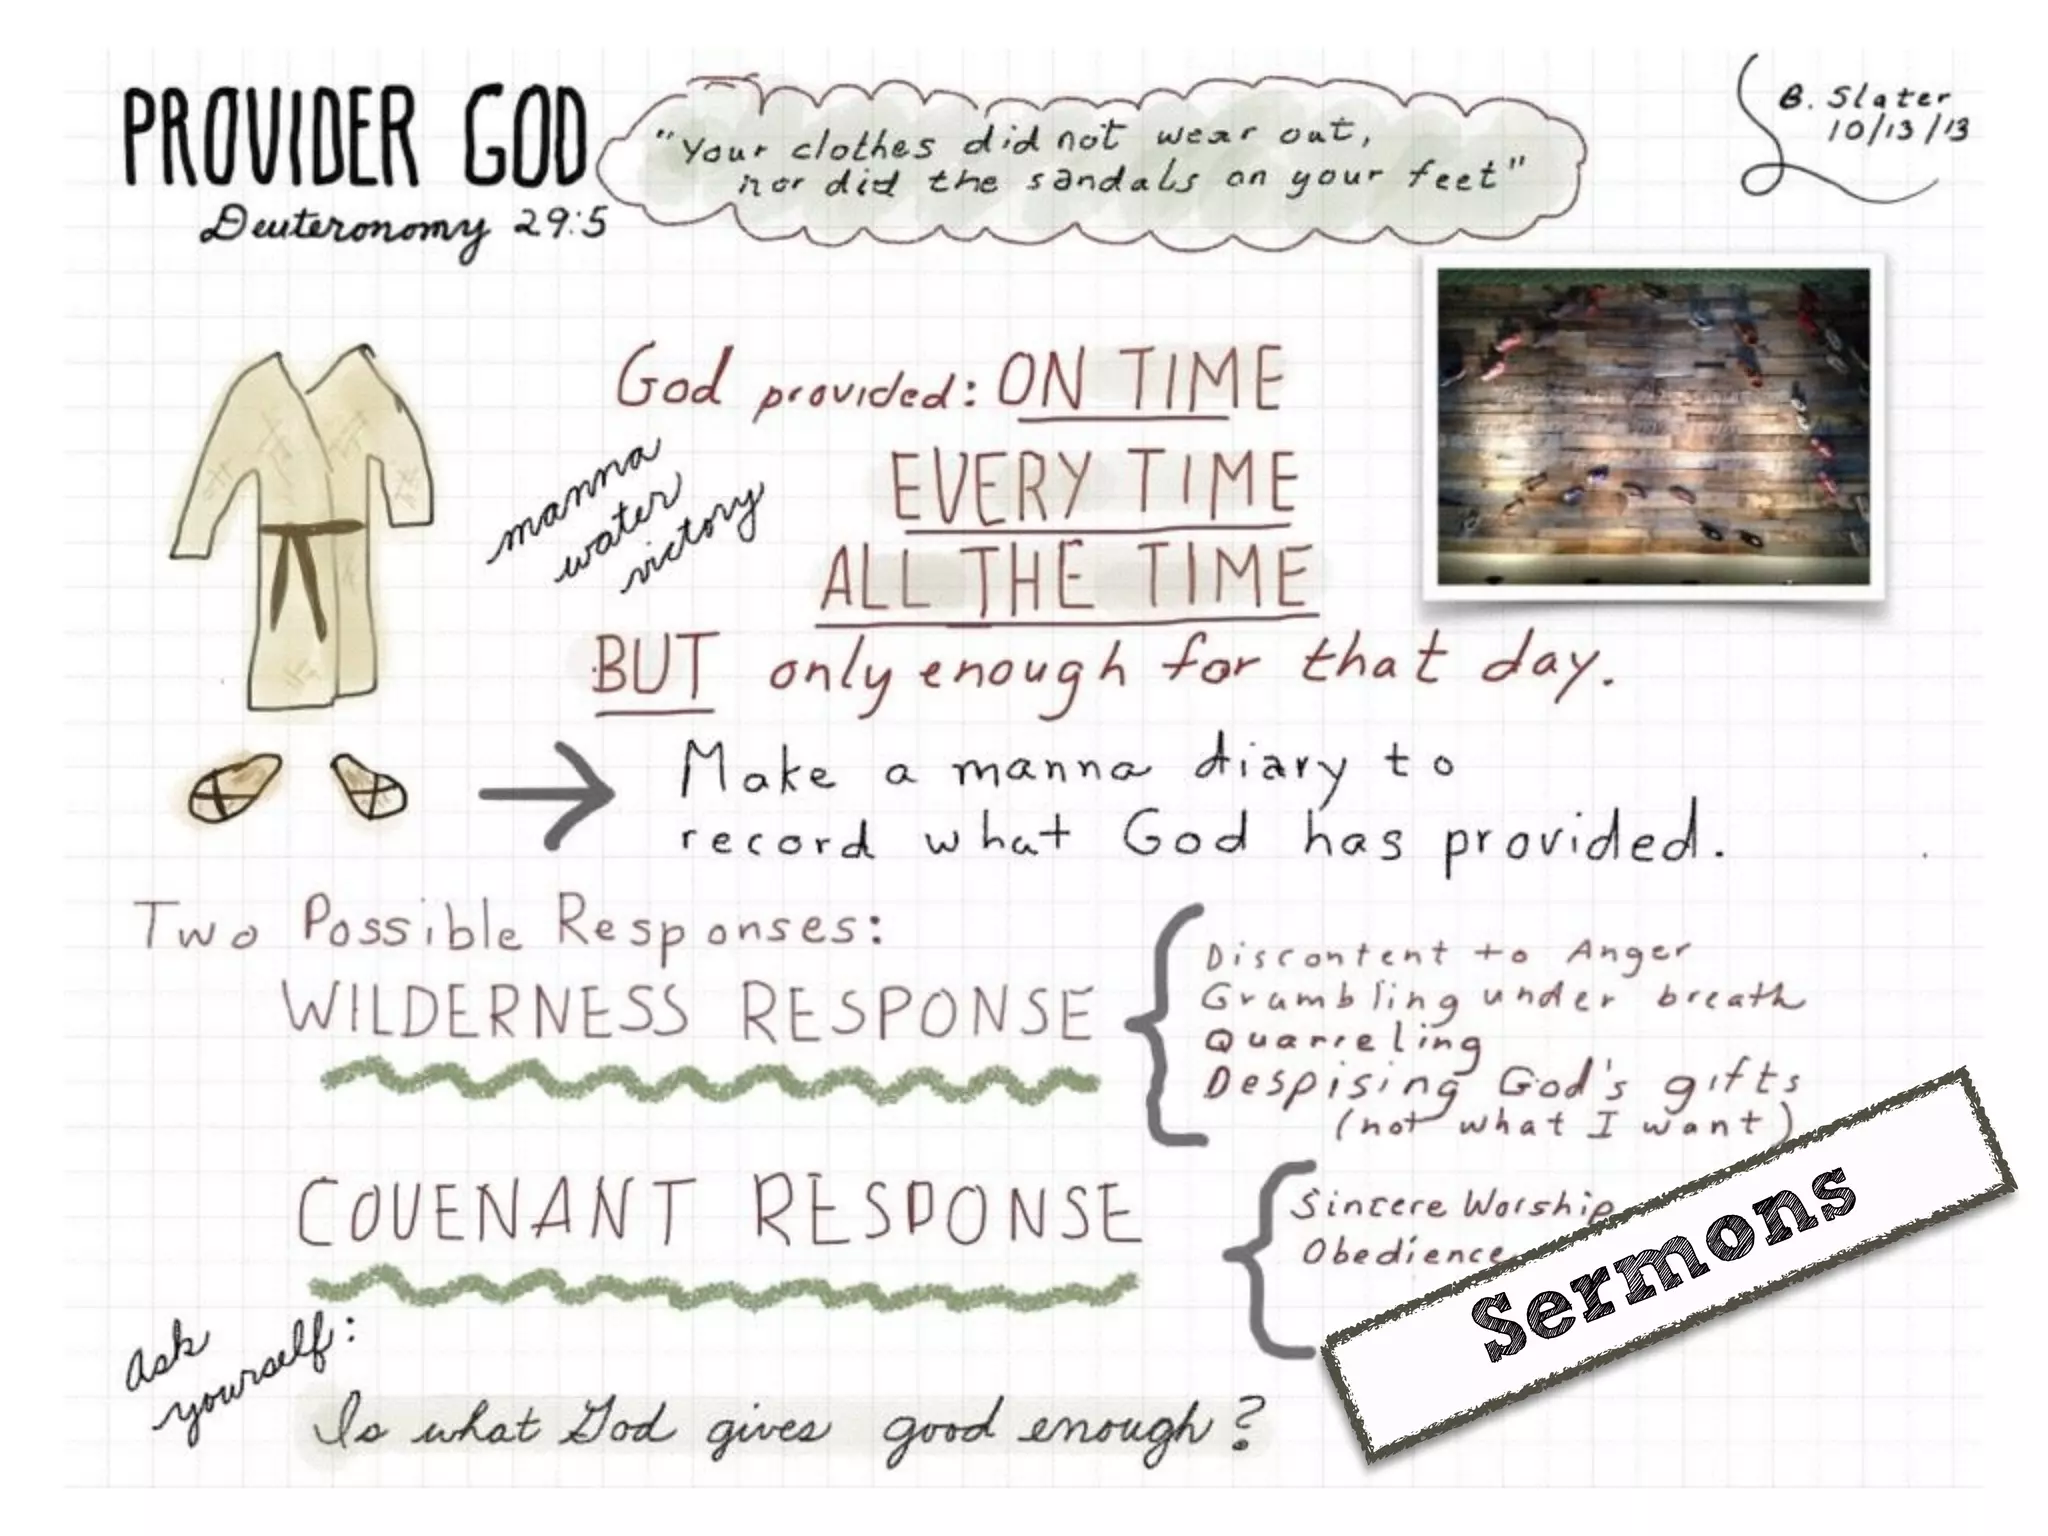 PROVIDER GOD
Deuteronomy 29:5
"Your clothes did not wear out,
nor did the sandals on your feet"
B. Slater
10/13/13
God provided: ON TIME
EVERY TIME
ALL THE TIME
manna
water
victory
BUT only enough for that day.
Make a manna diary to
record what God has provided.
Two Possible Responses:
WILDERNESS RESPONSE
Discontent to Anger
Grumbling under breath
Quarreling
Despising God's gifts
(not what I want)
COVENANT RESPONSE
Sincere Worship
Obedience
Sermons
Ask
yourself:
Is what God gives good enough?